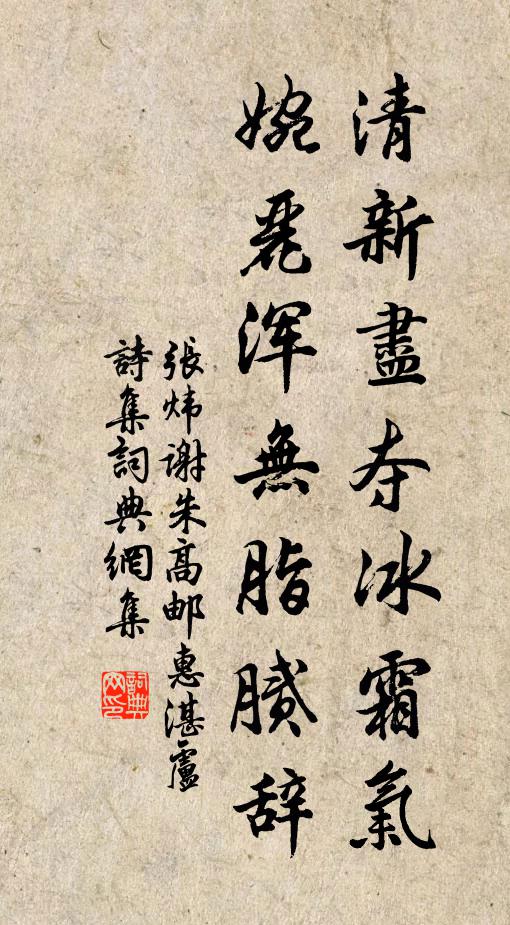 清新盡夺冰霜氣
婉麗浑無脂膩辞
張炜谢朱高邮惠湛廬
詩集詞典網集
詞典
网印